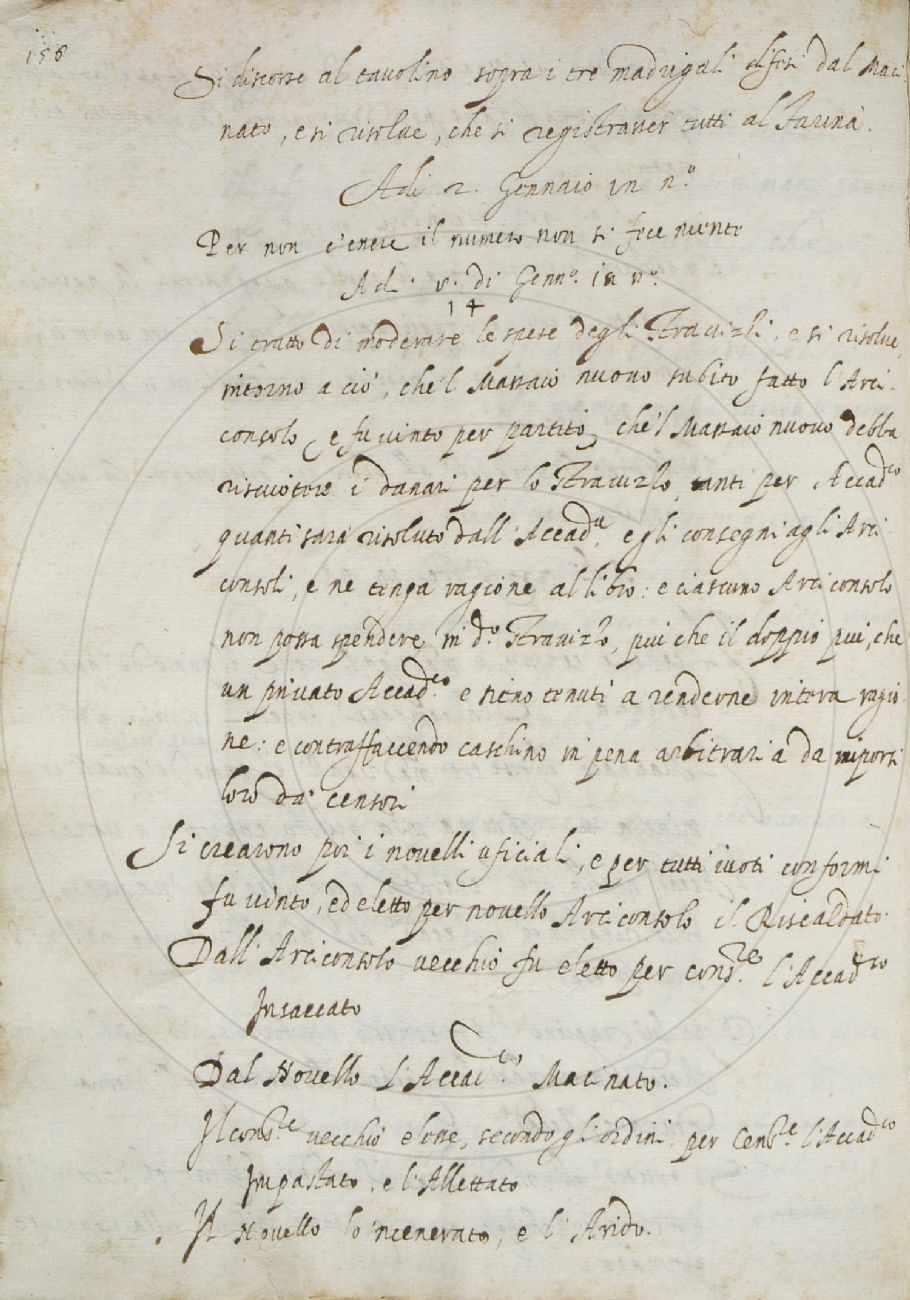 158
Si discorse al tavolino sopra i tre madrigali difesi dal Maci
nato, e si risolue, che si registrasser tutti al Farina.
Adi 2. Gennaio in n.º
Per non c'enere il numero non si fece niente
Adi. v. di Genn.º in n.º
14
Si tratto di moderare le spese degli Stravizzi, e si risolue,
intorno a ciò, che'l Massaio nuovo subito fatto l'Arci-
consolo, e fu uinto per partito, che'l Massaio nuovo debba
riscuotere i danari per lo Stravizzo, tanti per Accad.co
quanti sarà risoluto dall'Accad.a, e gli consegni agli Arci
consoli, e ne tenga ragione al libro: e ciascuno Arciconsolo
non possa spendere in d.º Stravizzo, piu che il doppio piu, che
un privato Accad.co e sieno tenuti a renderne intera ragio
ne: e contraffaccendo caschino in pena arbitraria da imporsi
loro da' censori
Si crearono poi i novelli uficiali, e per tutti i uoti conformi
fu uinto, ed eletto per novello Arciconsolo il Riscaldato.
Dall'Arciconsolo uecchio fu eletto per cons.re l'Accad.co
Insaccato
Dal Novello l'Accad.co Macinato.
Il cons.re uecchio elesse, secondo gli ordini per Cens.re l'Accad.co
Impastato, e l'Allettato
Il Novello lo'ncenerato, e l'Arido.